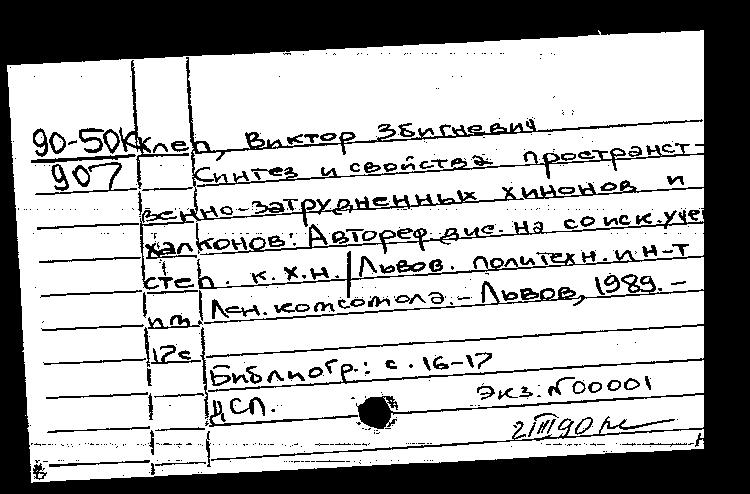 90-50К Клеп, Виктор Збигневич
907 Синтез и свойства пространст-
венно-затрудненных хинонов и
халконов: Автореф. дис. на соиск. учен
степ. к.х.н. / Львов. политехн. ин-т
им. Лен. комсомола. - Львов, 1989. -
17с
Библиогр.: с. 16-17
ДСП. Экз. N00001
2 III 90